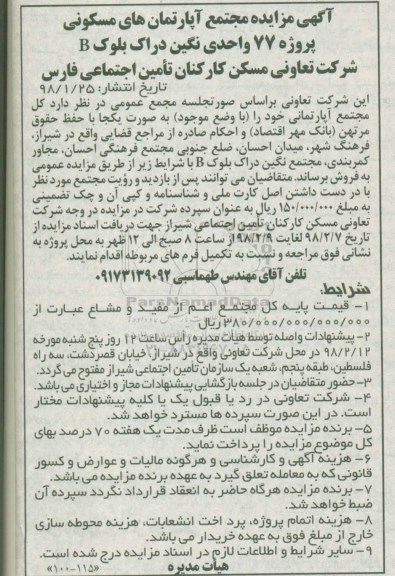 آگهی مزایده مجتمع آپارتمان های مسکونی
پروژه ۷۷ واحدی نگین دراک بلوک B
شرکت تعاونی مسکن کارکنان تأمین اجتماعی فارس
تاریخ انتشار: ۹۸/۱/۲۵
این شرکت تعاونی براساس صورتجلسه مجمع عمومی در نظر دارد کل
مجتمع آپارتمانی خود را (با وضع موجود) به صورت یکجا با حفظ حقوق
مرتهن (بانک مهر اقتصاد) و احکام صادره از مراجع قضایی واقع در شیراز،
فرهنگ شهر، میدان احسان، ضلع جنوبی مجتمع فرهنگی احسان، مجاور
کمربندی، مجتمع نگین دراک بلوک B با شرایط زیر از طریق مزایده عمومی
به فروش برساند. متقاضیان می توانند پس از بازدید و رؤیت مجتمع مورد نظر
با در دست داشتن اصل کارت ملی و شناسنامه و کپی آن و چک تضمینی
به مبلغ ۱۵۰/۰۰۰/۰۰۰ ریال به عنوان سپرده شرکت در مزایده در وجه شرکت
تعاونی مسکن کارکنان تأمین اجتماعی شیراز جهت دریافت اسناد مزایده از
تاریخ ۹۸/۲/۷ لغایت ۹۸/۲/۹ از ساعت ۸ صبح الی ۱۲ ظهر به محل پروژه به
نشانی فوق مراجعه و نسبت به تکمیل فرم های مربوطه اقدام نمایند.
تلفن آقای مهندس طهماسبی ۰۹۱۷۳۱۳۹۰۹۲
شرایط:
۱- قیمت پایه کل مجتمع اعم از مفید و مشاع عبارت از
۳۸۰/۰۰۰/۰۰۰/۰۰۰ ریال
۲- پیشنهادات واصله توسط هیات مدیره رأس ساعت ۱۲ روز پنج شنبه مورخه
۹۸/۲/۱۲ در محل شرکت تعاونی واقع در شیراز، خیابان قصردشت، سه راه
فلسطین، طبقه پنجم، شعبه یک سازمان تأمین اجتماعی شیراز مفتوح می گردد.
۳- حضور متقاضیان در جلسه بازگشایی پیشنهادات مجاز و اختیاری می باشد.
۴- شرکت تعاونی در رد یا قبول یک یا کلیه پیشنهادات مختار
است. در این صورت سپرده ها مسترد خواهد شد.
۵- برنده مزایده موظف است ظرف مدت یک هفته ۷۰ درصد بهای
کل موضوع مزایده را پرداخت نماید.
۶- هزینه آگهی و کارشناسی و هرگونه مالیات و عوارض و کسور
قانونی که به معامله تعلق گیرد به عهده برنده مزایده می باشد.
۷- برنده مزایده هرگاه حاضر به انعقاد قرارداد نگردد سپرده آن
ضبط خواهد شد.
۸- هزینه اتمام پروژه، پرد اخت انشعابات، هزینه محوطه سازی
خارج از مبلغ فوق به عهده خریدار می باشد.
۹- سایر شرایط و اطلاعات لازم در اسناد مزایده درج شده است.
هیأت مدیره
«۱۰۰-۱۱۵»
ParsNamadData